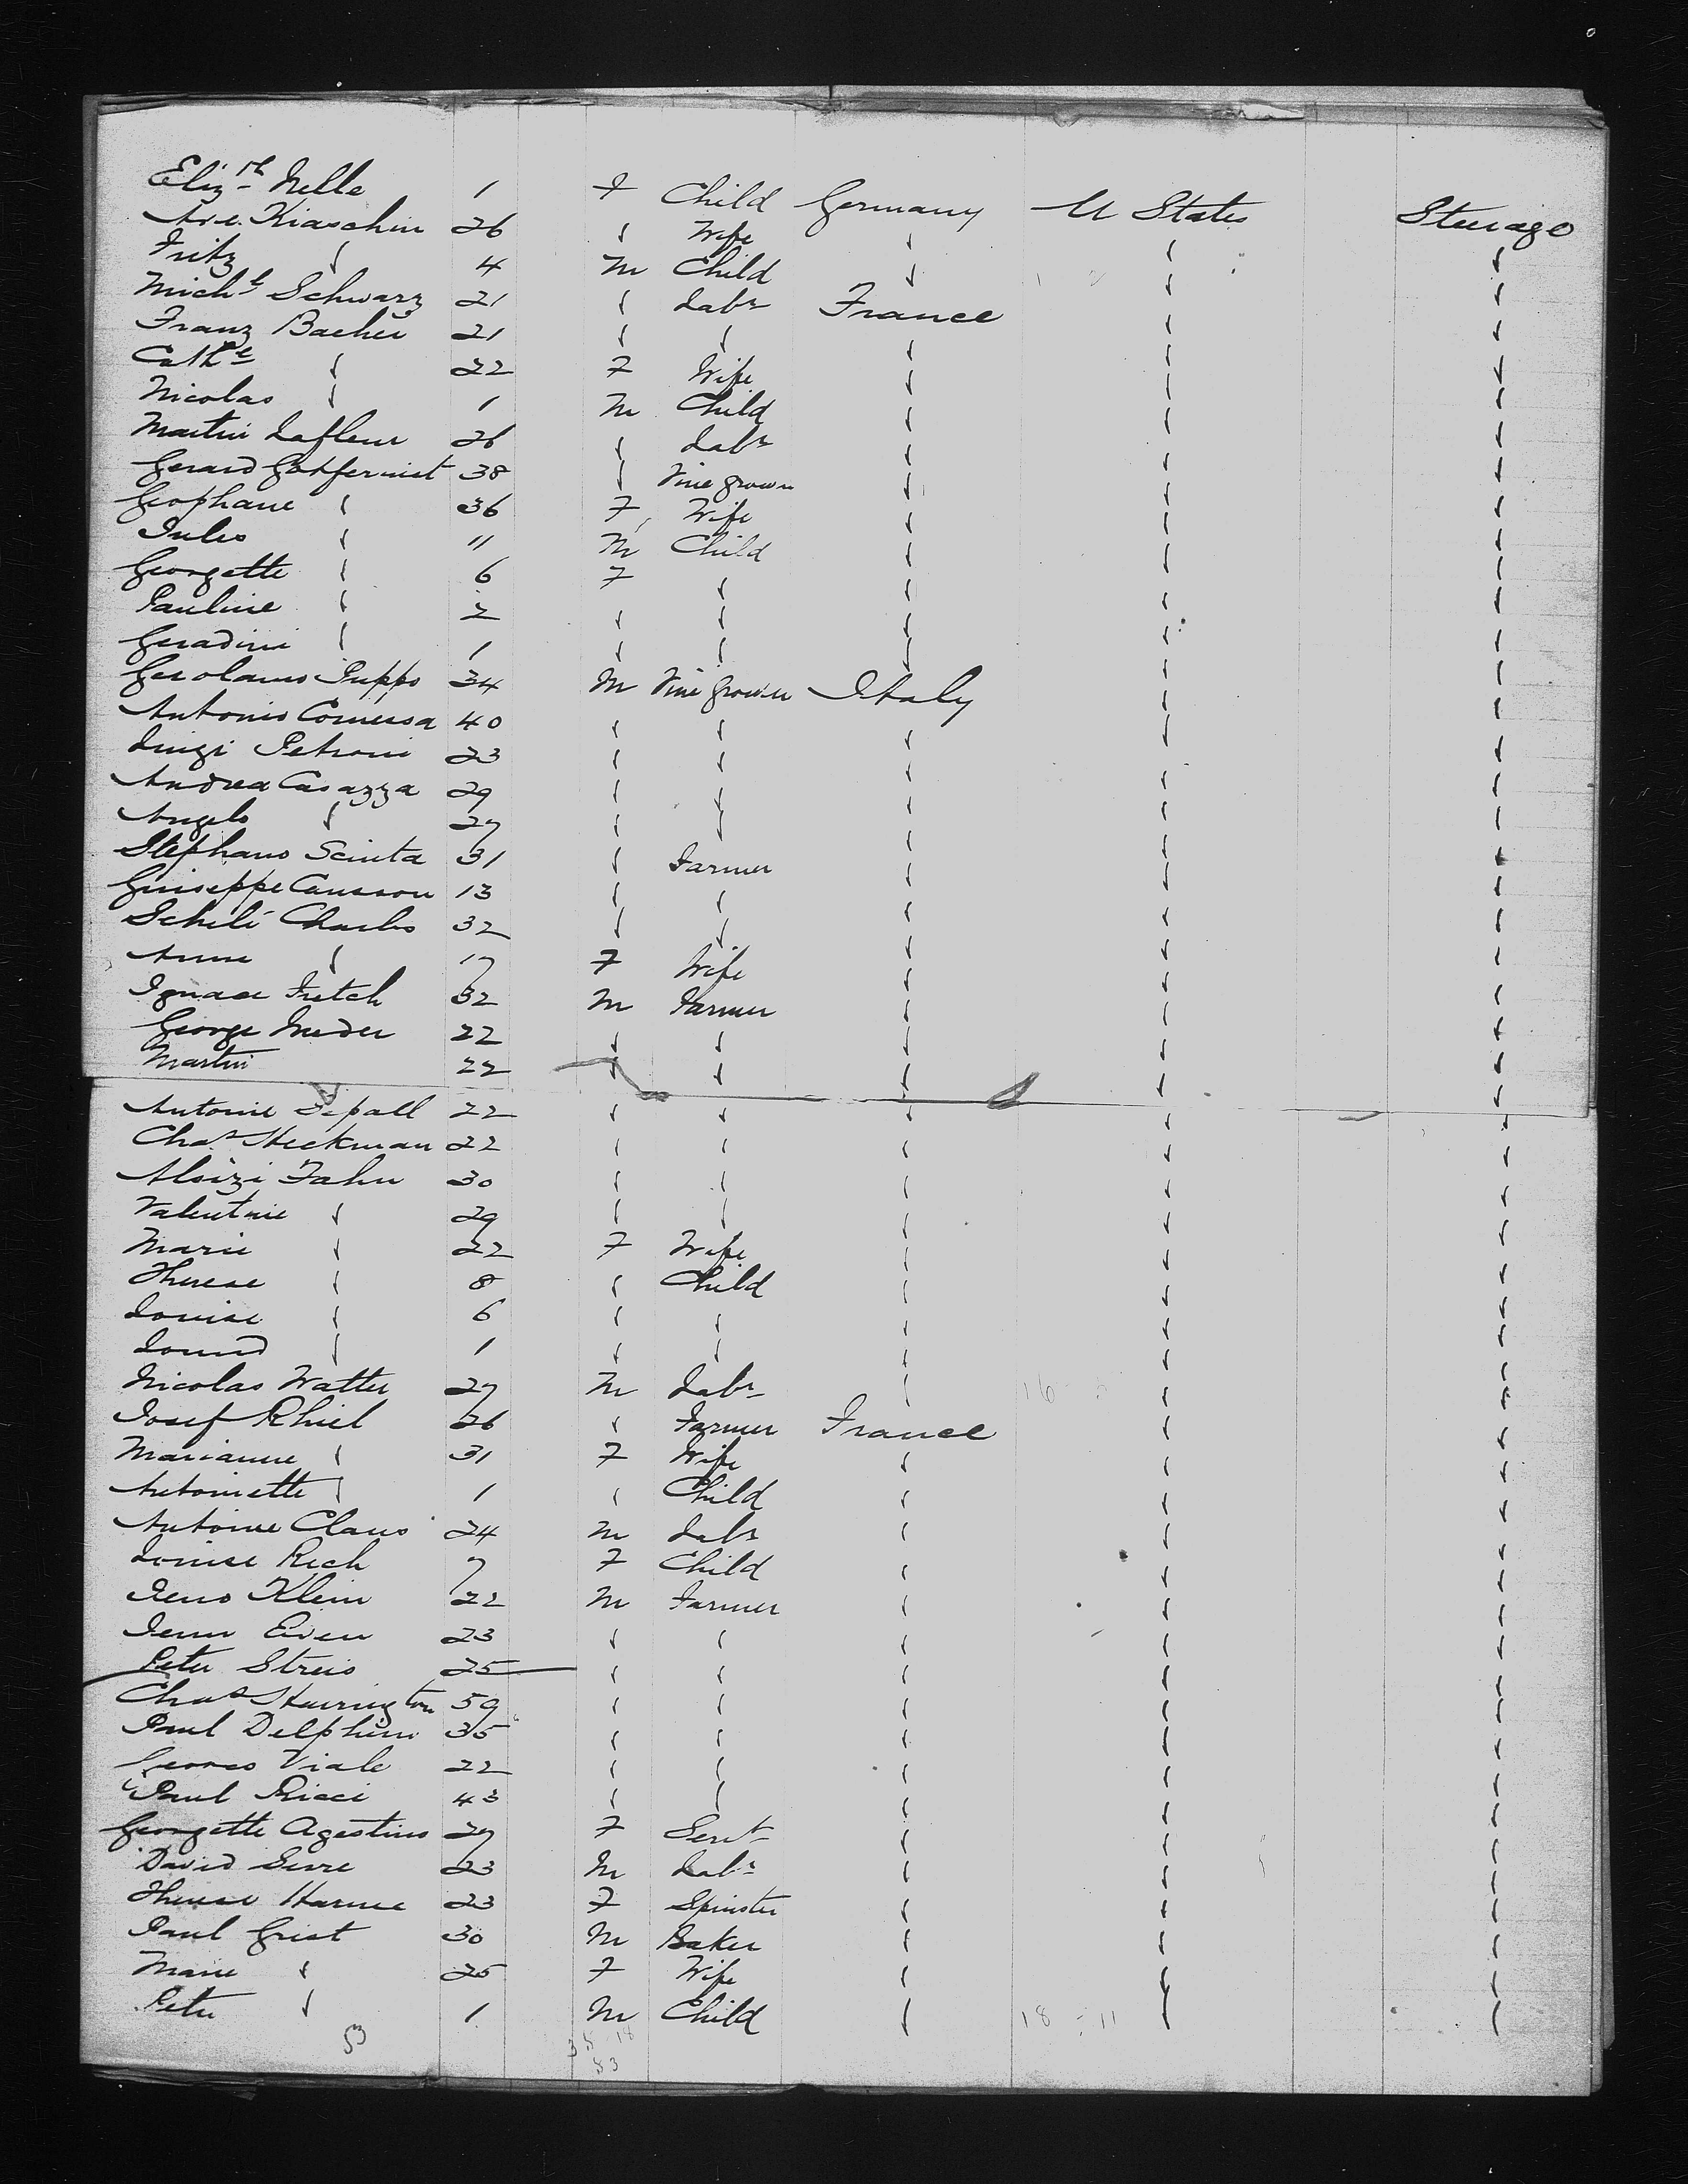 Eliz.th Nelle 1 F Child Germany U States Steerage
Ave. Kiaschin 26 " Wife " " "
Fritz " 4 M Child " " "
Mich.l Schwarz 21 " Labr France " "
Franz Bacher 21 " " " " "
Cath.e " 22 F Wife " " "
Nicolas " 1 M Child " " "
Martin Lafleur 26 " Labr " " "
Gerard 38 " Vine grower " " "
Geophane " 36 F Wife " " "
Jules " 11 M Child " " "
Georgette " 6 F " " " "
Pauline " 2 " " " " "
Geradini " 1 " " " " "
Gerolamo Puppo 34 M Vine Grower Italy " "
Antonio Comessa 40 " " " " "
Luigi Petroni 23 " " " " "
Andrea Casazza 29 " " " " "
Angelo " 27 " " " " "
Stephano Scinta 31 " Farmer " " "
Guiseppe Causson 13 " " " " "
Schelé Charles 32 " " " " "
Anne " 17 F Wife " " "
Ignace Fretch 32 M Farmer " " "
George Meder 22 " " " " "
Martin 22 " " " " "
Antonie 22 " " " " "
Chas Heckman 22 " " " " "
Aloizi Fahn 30 " " " " "
Valentine " 29 " " " " "
Marie " 22 F Wife " " "
Therese " 8 " Child " " "
Louise " 6 " " " " "
" 1 " " " " "
Nicolas Watter 27 M Labr " " "
Josef Rhiel 26 " Farmer France " "
Marianne " 31 F Wife " " "
Antoinette " 1 " Child " " "
Antoine Claus 24 M Labr " " "
Louise Rech 7 F Child " " "
Klein 22 M Farmer " " "
Even 23 " " " " "
Peter Streis 25 " " " " "
Chas Harrington 59 " " " " "
Paul Delphin 35 " " " " "
Georges Viale 22 " " " " "
Paul Ricci 43 " " " " "
Georgette Agostino 29 F Servt " " "
David Serre 23 M Labr " " "
Therese Harme 23 F Spinster " " "
Paul Grist 30 M Baker " " "
Marie " 25 F Wife " " "
Peter " 1 M Child " " "
53 35 18
53